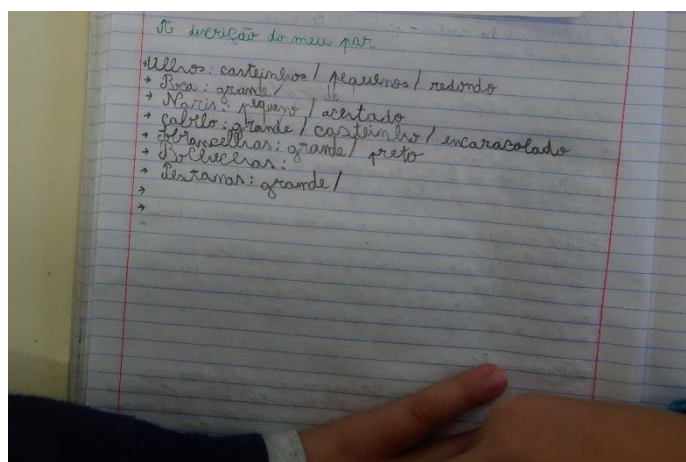 A descrição do meu par
→ Ulhos: casteinhos / pequenos / redondo
→ Boca: grande /
→ Naris: pequeno / acertado
→ Cabelo: grande / casteinho / encaracolado
→ Sobrancelhas: grande / preto
→ Bochechas:
→ Pestanas: grande /
→
→